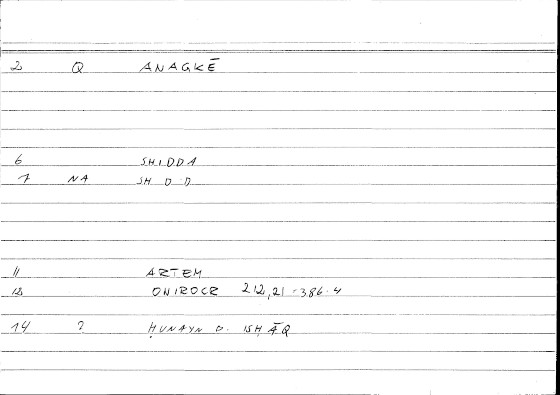 2 Q ANAGKĒ
6 SHIDDA
7 NA SH D D
11 ARTEM
12 ONIROCR 212,21 = 386.4
14 ? ḤUNAYN B. ISḤĀQ